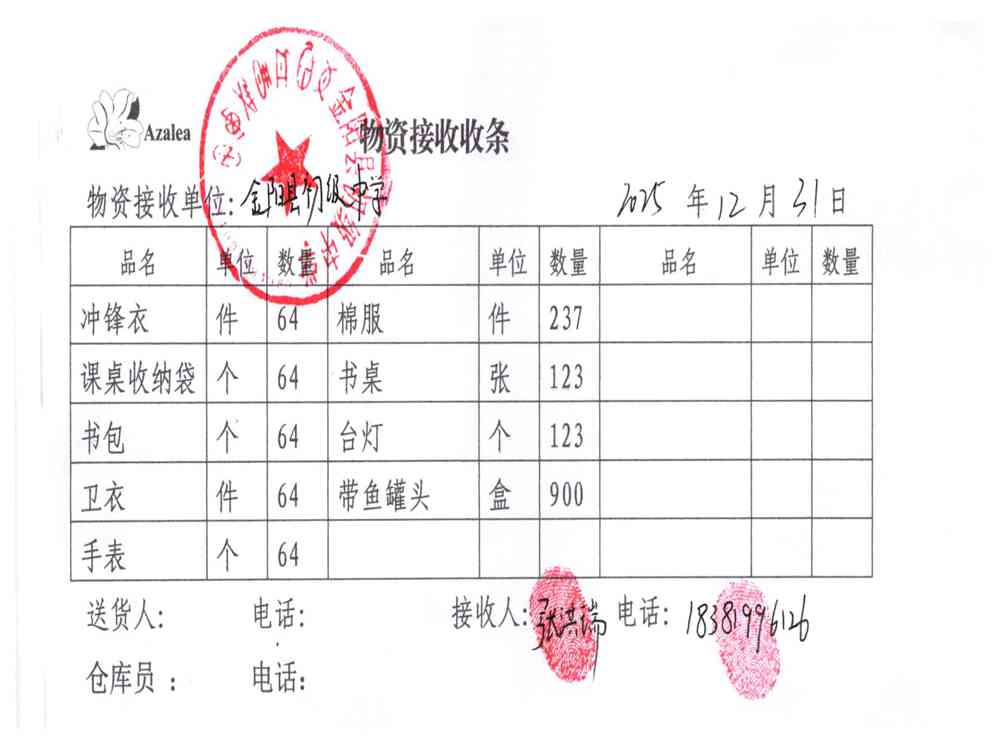 Azalea
物资接收收条
物资接收单位:金阳县初级中学 2025 年 12 月 31 日
品名 单位 数量 品名 单位 数量 品名 单位 数量
冲锋衣 件 64 棉服 件 237
课桌收纳袋 个 64 书桌 张 123
书包 个 64 台灯 个 123
卫衣 件 64 带鱼罐头 盒 900
手表 个 64
送货人: 电话: 接收人:张洪瑞 电话: 18381996126
仓库员 : 电话:
金阳县初级中学